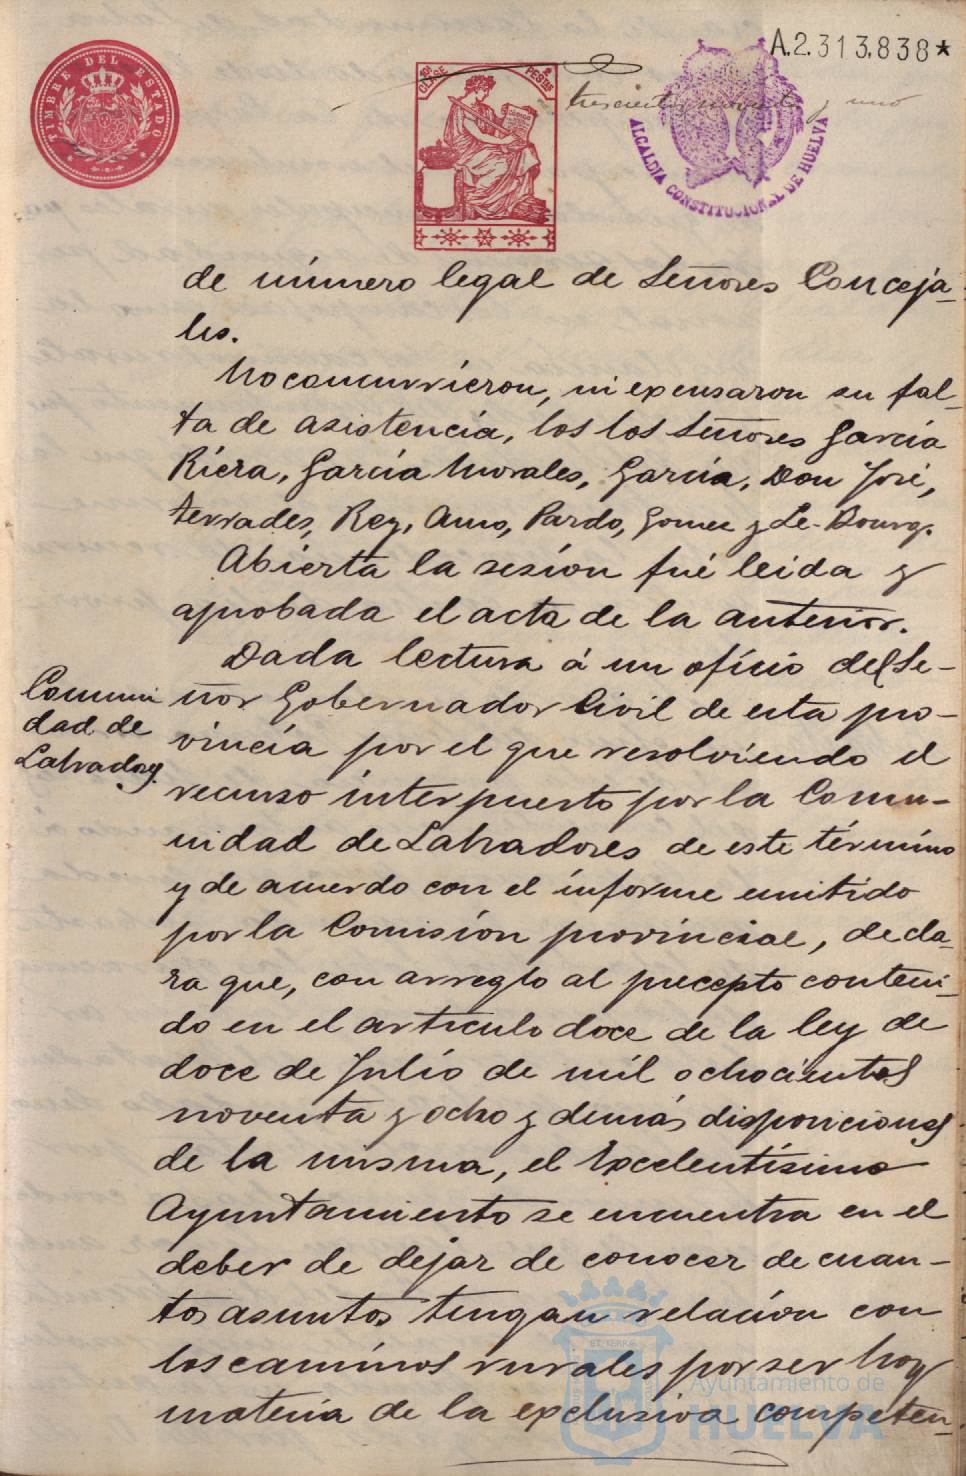 A.2.313.838*
TIMBRE DEL ESTADO
10ª CLASE
2 PESETAS
trescientos noventa y uno
ALCALDIA CONSTITUCIONAL DE HUELVA
de número legal de Señores Conceja-
les.
No concurrieron, ni expensaron su fal-
ta de asistencia, los los Señores García
Riera, García Morales, García, Don José,
Terrades, Rey, Amo, Pardo, Gomez y Le-Bourg.
Abierta la sesión fué leida y
aprobada el acta de la anterior.
Comuni
dad de
Labradores.
Dada lectura á un oficio del Se-
ñor Gobernador Civil de esta pro-
vincia por el que resolviendo el
recurso interpuesto por la Comu-
nidad de Labradores de este término
y de acuerdo con el informe emitido
por la Comisión provincial, decla-
ra que, con arreglo al precepto conteni-
do en el artículo doce de la ley de
doce de Julio de mil ochocientos
noventa y ocho y demás disposiciones
de la misma, el Excelentísimo
Ayuntamiento se encuentra en el
deber de dejar de conocer de cuan-
tos asuntos tengan relación con
los caminos rurales por ser hoy
materia de la exclusiva competen-
Ayuntamiento de
HUELVA